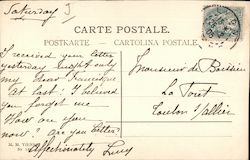 Saturday 3
CARTE POSTALE.
POSTKARTE - CARTOLINA POSTALE
I received your letter
yesterday night only
my dear
At last! I believed
you forgot me
How are you
now? are you better?
Affectionately Lucy
Monsieur de
Le
Toulon s/Allier